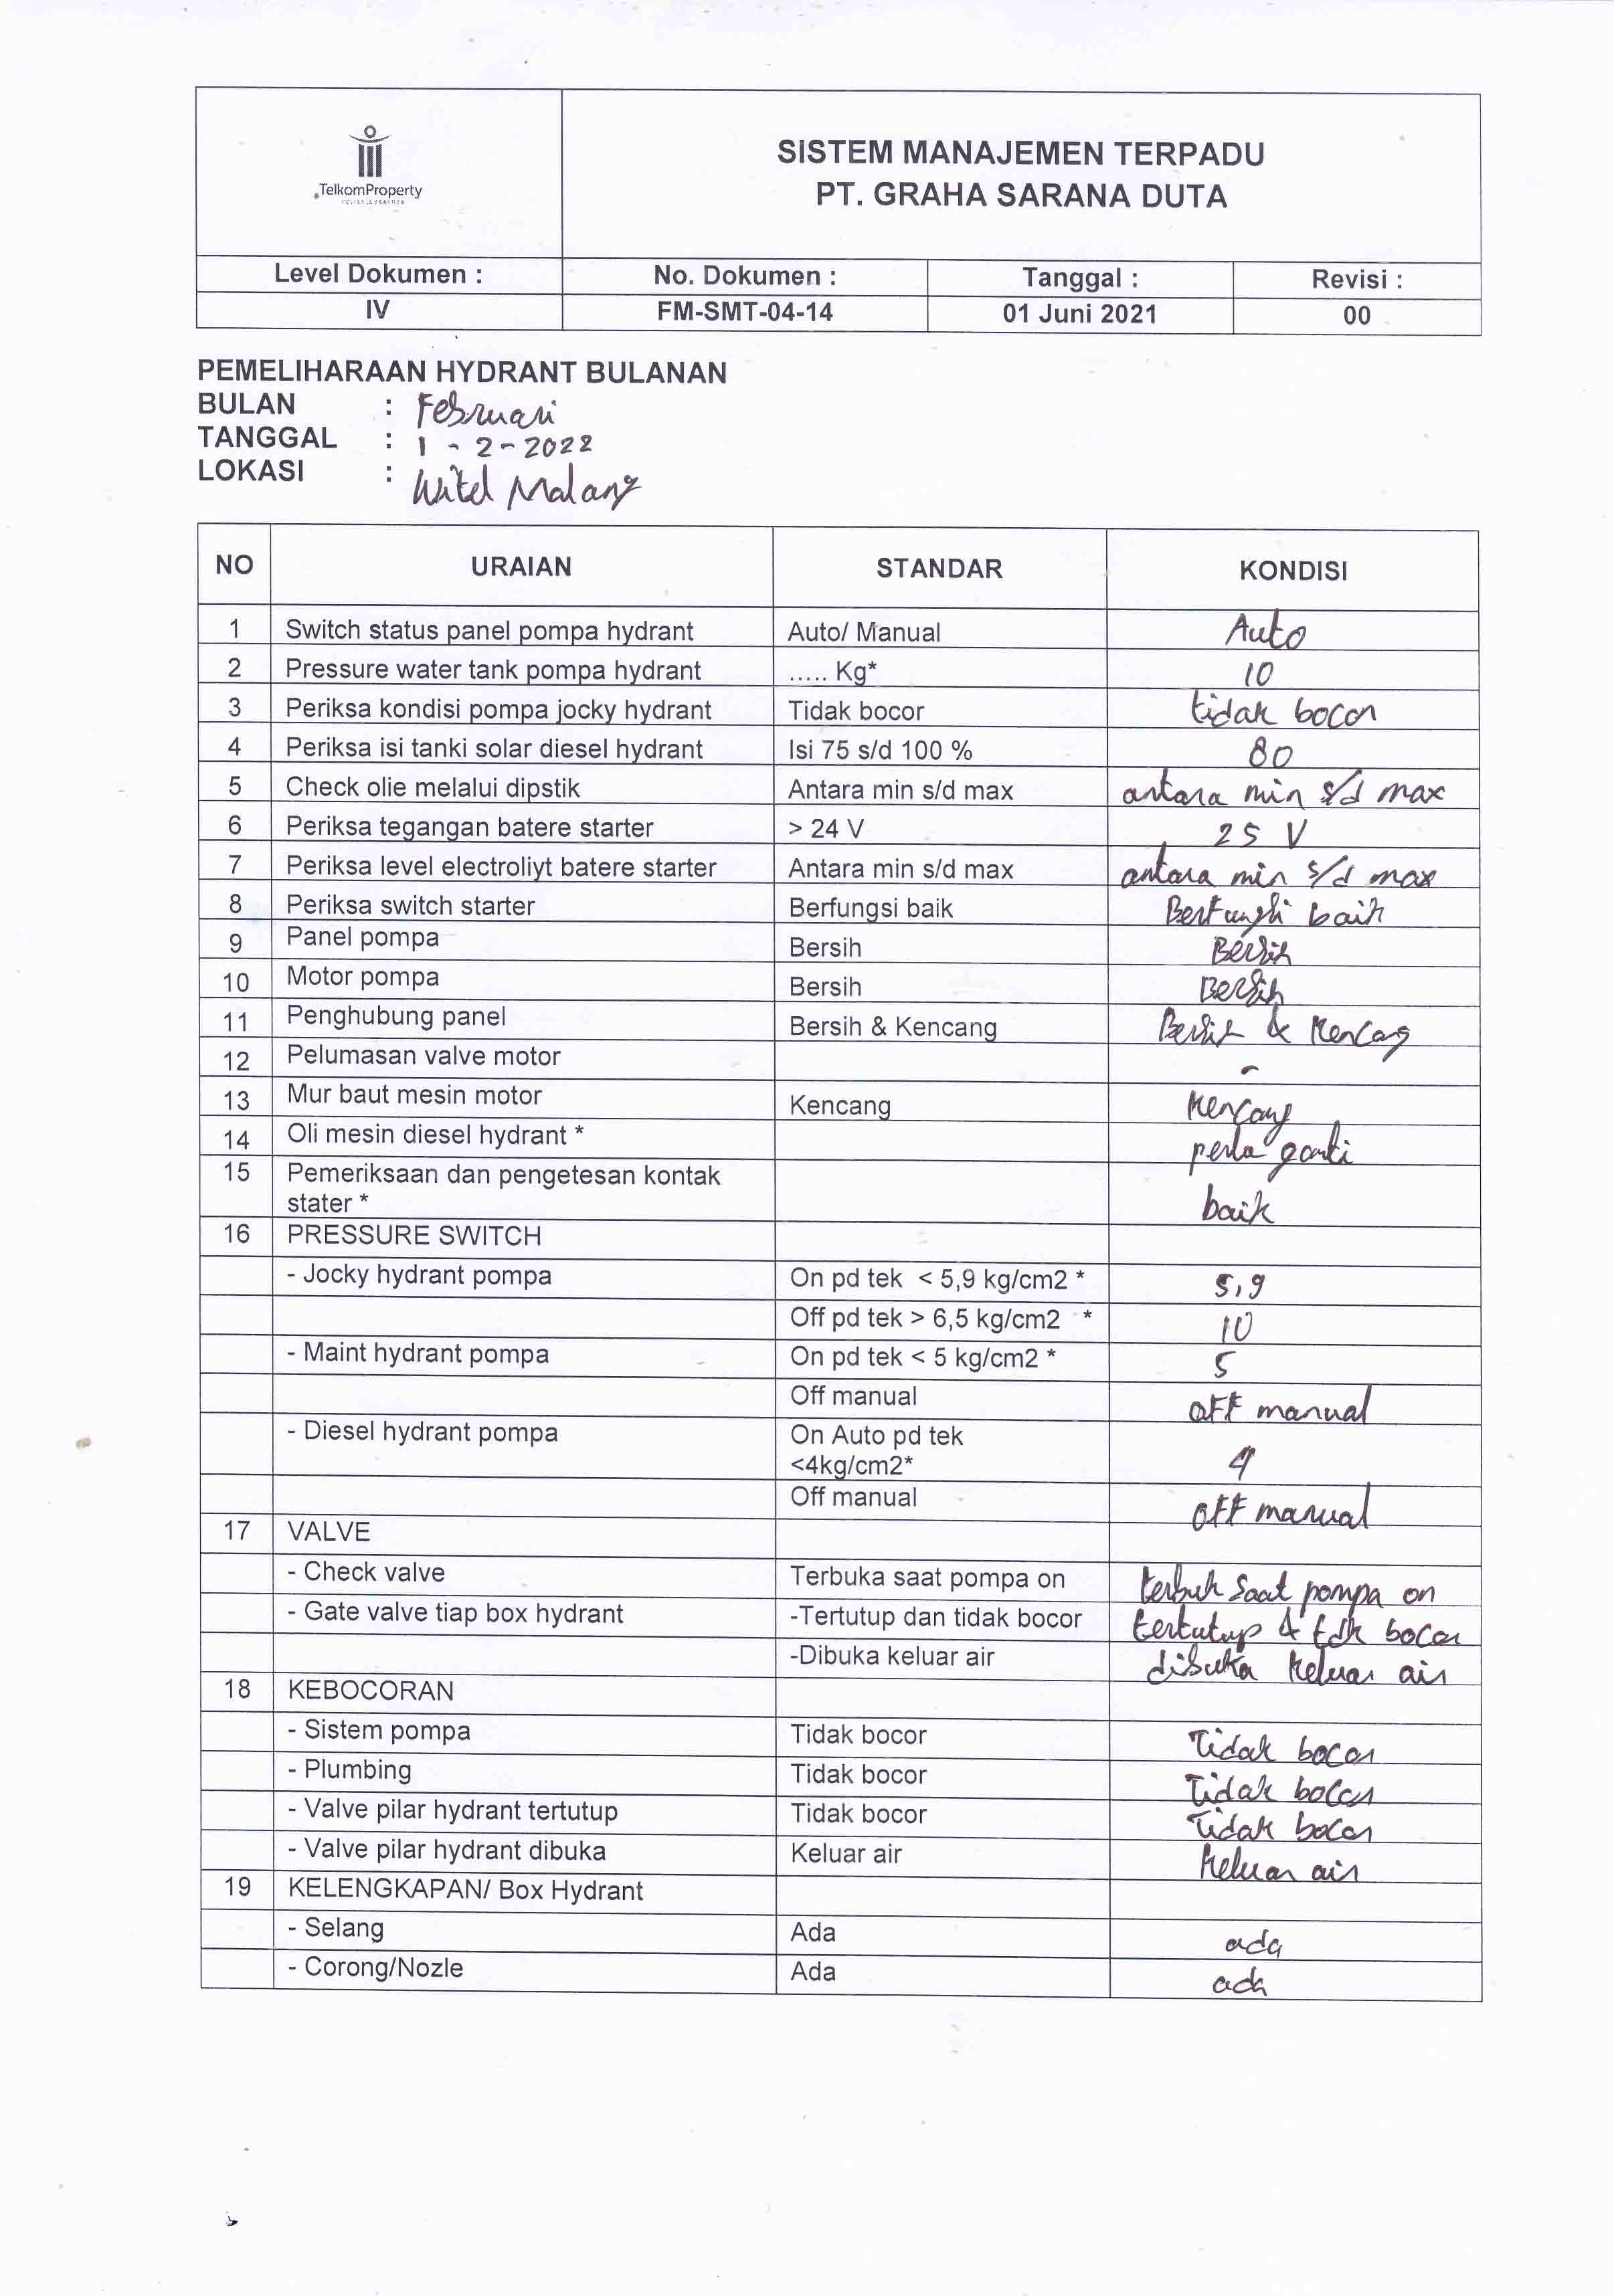 TelkomProperty
SISTEM MANAJEMEN TERPADU
PT. GRAHA SARANA DUTA
Level Dokumen : No. Dokumen : Tanggal : Revisi :
IV FM-SMT-04-14 01 Juni 2021 00
PEMELIHARAAN HYDRANT BULANAN
BULAN : Februari
TANGGAL : 1 - 2 - 2022
LOKASI : Witel Malang
NO URAIAN STANDAR KONDISI
1 Switch status panel pompa hydrant Auto/ Manual Auto
2 Pressure water tank pompa hydrant ..... Kg* 10
3 Periksa kondisi pompa jocky hydrant Tidak bocor tidak bocor
4 Periksa isi tanki solar diesel hydrant Isi 75 s/d 100 % 80
5 Check olie melalui dipstik Antara min s/d max antara min s/d max
6 Periksa tegangan batere starter > 24 V 25 V
7 Periksa level electroliyt batere starter Antara min s/d max antara min s/d max
8 Periksa switch starter Berfungsi baik Berfungsi baik
9 Panel pompa Bersih Bersih
10 Motor pompa Bersih Bersih
11 Penghubung panel Bersih & Kencang Bersih & Kencang
12 Pelumasan valve motor -
13 Mur baut mesin motor Kencang Kencang
14 Oli mesin diesel hydrant * perlu ganti
15 Pemeriksaan dan pengetesan kontak
stater * baik
16 PRESSURE SWITCH
- Jocky hydrant pompa On pd tek < 5,9 kg/cm2 * 5,9
Off pd tek > 6,5 kg/cm2 * 10
- Maint hydrant pompa On pd tek < 5 kg/cm2 * 5
Off manual off manual
- Diesel hydrant pompa On Auto pd tek
<4kg/cm2* 4
Off manual off manual
17 VALVE
- Check valve Terbuka saat pompa on terbuk saat pompa on
- Gate valve tiap box hydrant -Tertutup dan tidak bocor tertutup & tdk bocor
-Dibuka keluar air dibuka keluar air
18 KEBOCORAN
- Sistem pompa Tidak bocor Tidak bocor
- Plumbing Tidak bocor Tidak bocor
- Valve pilar hydrant tertutup Tidak bocor Tidak bocor
- Valve pilar hydrant dibuka Keluar air Keluar air
19 KELENGKAPAN/ Box Hydrant
- Selang Ada ada
- Corong/Nozle Ada ada